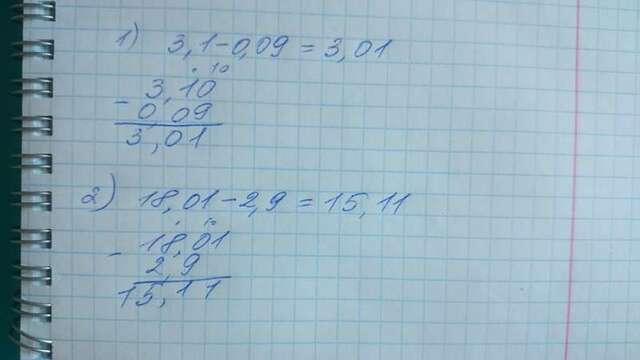 1) 3,1-0,09 = 3,01
. 10
3,10
- 0,09
3,01
2) 18,01-2,9 = 15,11
. 10
- 18,01
2,9
15,11